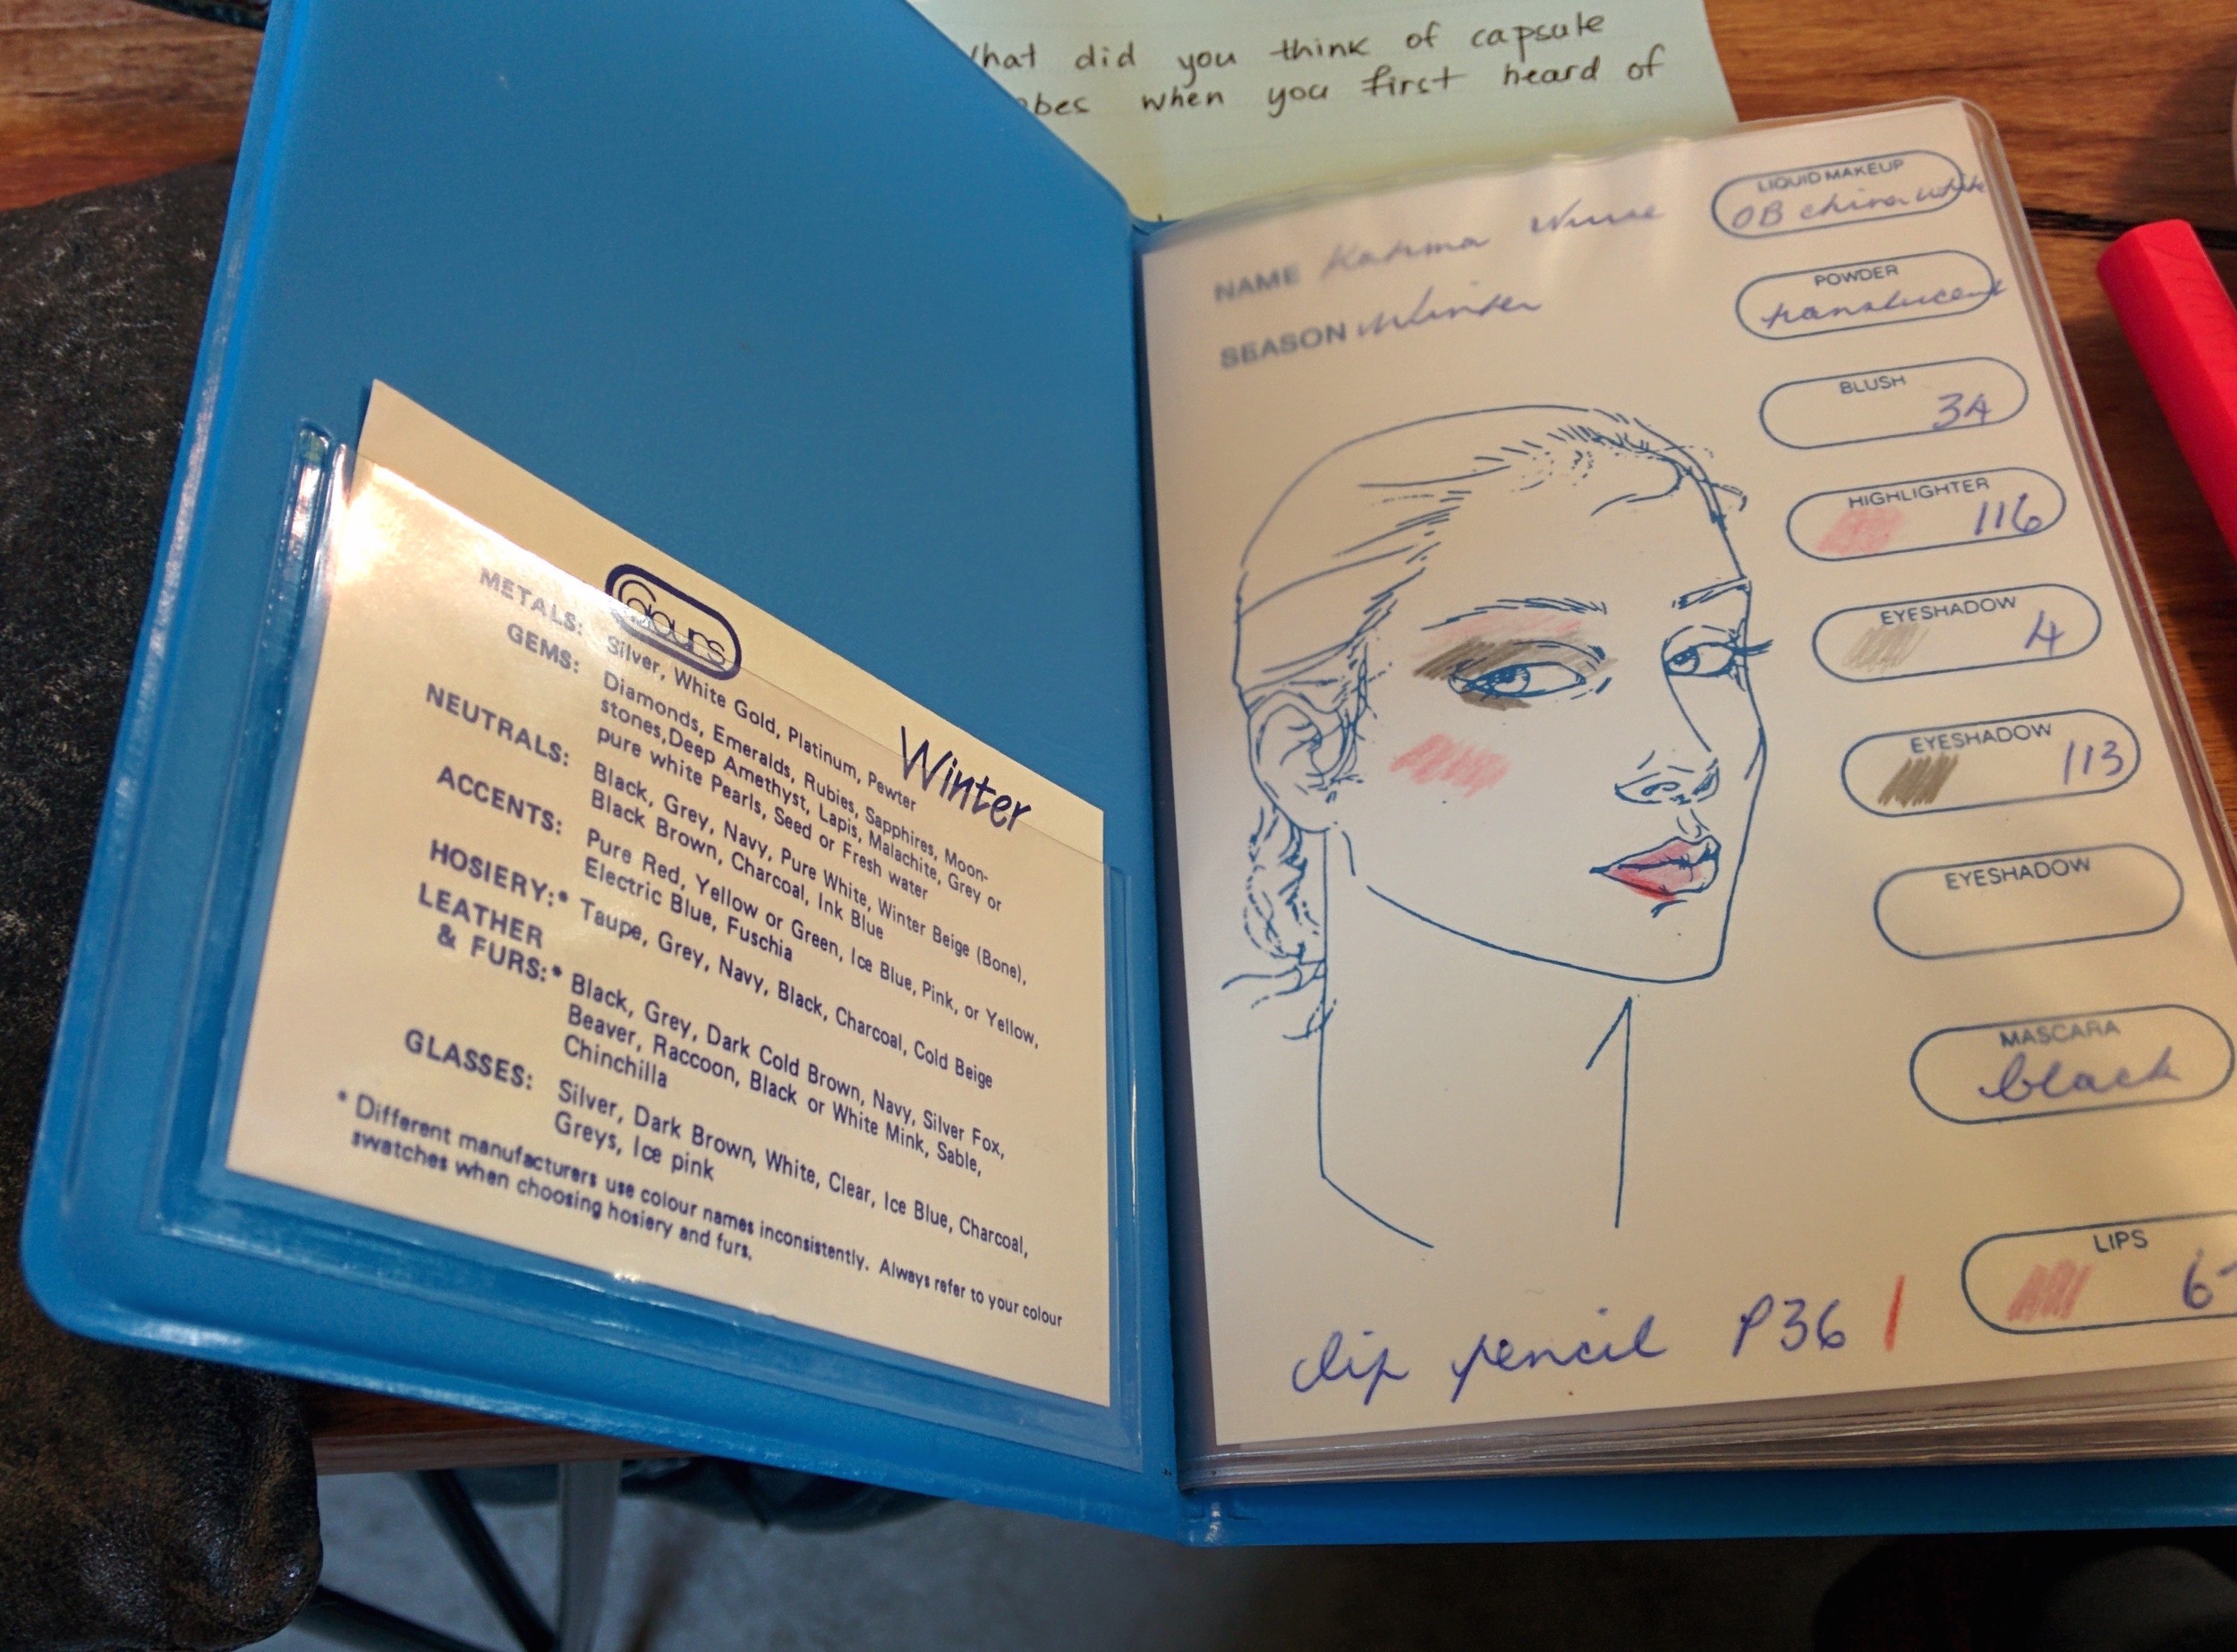 hat did you think of capsule
obes when you first heard of
Colours
Winter
METALS: Silver, White Gold, Platinum, Pewter
GEMS: Diamonds, Emeralds, Rubies, Sapphires, Moon-
stones,Deep Amethyst, Lapis, Malachite, Grey or
pure white Pearls, Seed or Fresh water
NEUTRALS: Black, Grey, Navy, Pure White, Winter Beige (Bone),
Black Brown, Charcoal, Ink Blue
ACCENTS: Pure Red, Yellow or Green, Ice Blue, Pink, or Yellow,
Electric Blue, Fuschia
HOSIERY:* Taupe, Grey, Navy, Black, Charcoal, Cold Beige
LEATHER
& FURS:* Black, Grey, Dark Cold Brown, Navy, Silver Fox,
Beaver, Raccoon, Black or White Mink, Sable,
Chinchilla
GLASSES: Silver, Dark Brown, White, Clear, Ice Blue, Charcoal,
Greys, Ice pink
* Different manufacturers use colour names inconsistently. Always refer to your colour
swatches when choosing hosiery and furs.
NAME
SEASON Winter
LIQUID MAKEUP
OB china white
POWDER
translucent
BLUSH
34
HIGHLIGHTER
116
EYESHADOW
4
EYESHADOW
113
EYESHADOW
MASCARA
black
LIPS
6
1
lip pencil P36